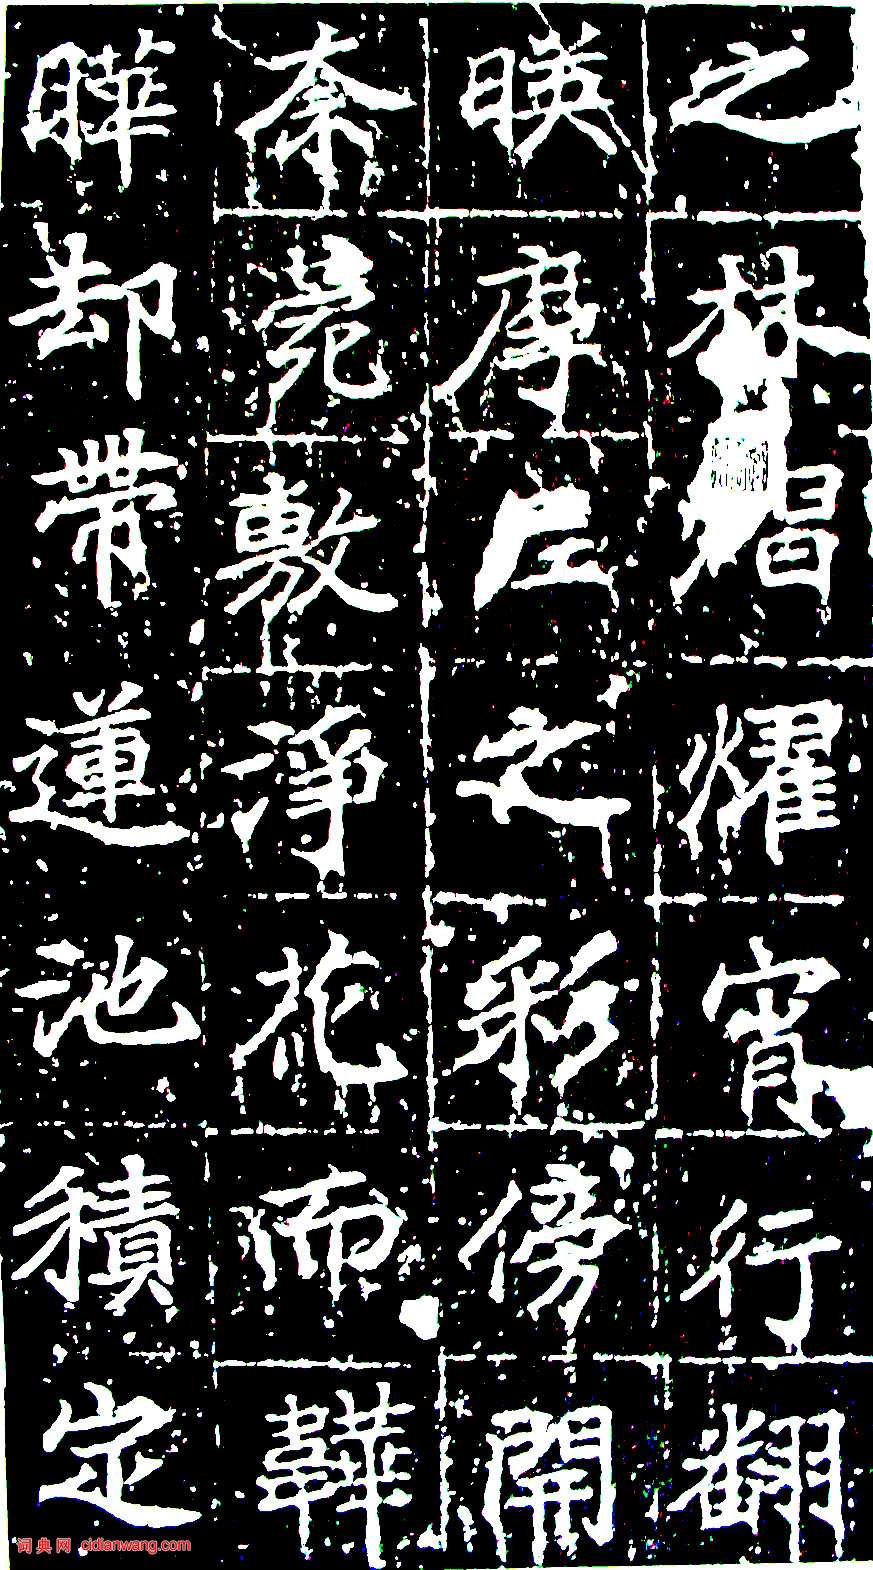 之林燿宵行翻
暎之彩傍開
柰菀敷淨花而韡
曄却帶蓮池積定
词典网 cidianwang.com